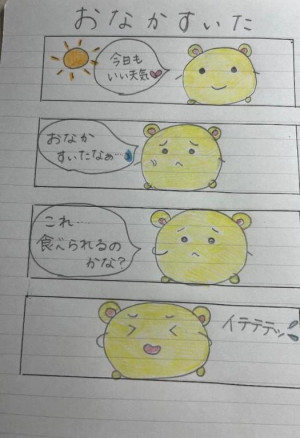 おなかすいた
今日も
いい天気
おなか
すいたなぁ…
これ…
食べられるの
かな?
イテテテッ